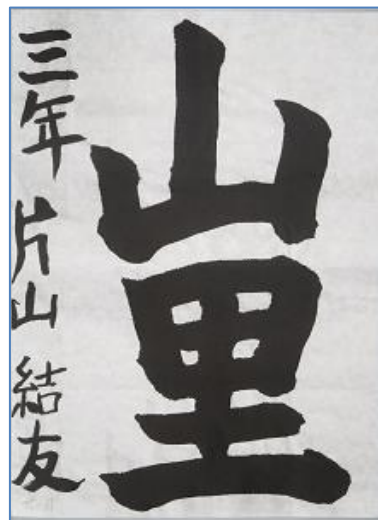 山里
三年 片山 結友